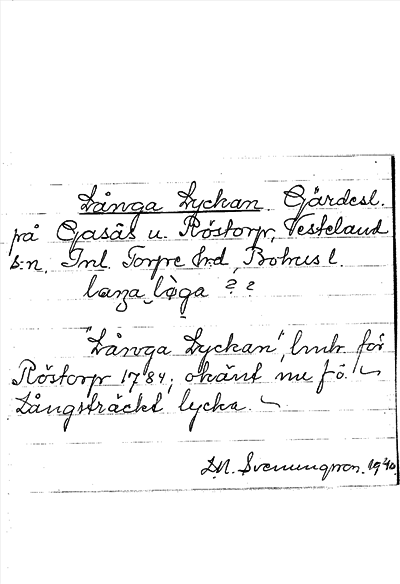 Långa Lyckan. Gärdesl.
på Gasås u. Röstorp, Vesteland
s:n, Inl. Torpe hrd, Bohusl.
"Långa Lyckan", hmh för
Röstorp 1784; okänt nu fö.
Långsträckt lycka.
D.N. Svenungson. 1940.